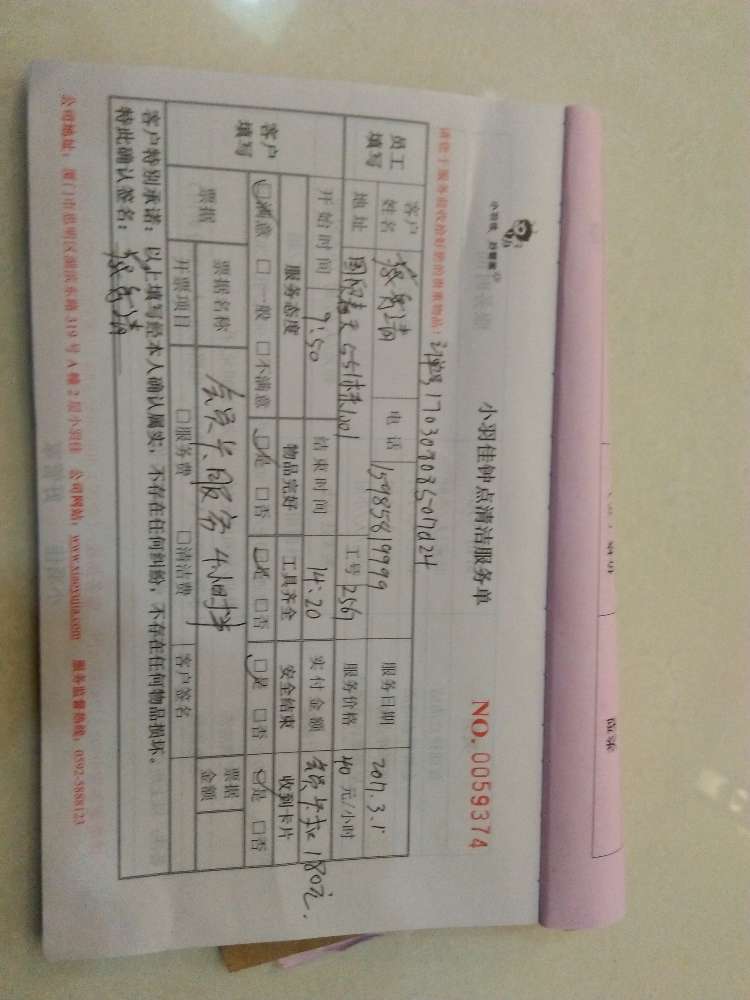 小羽佳钟点清洁服务单
NO. 0059374
请您于服务验收前好您的贵重物品!
订单号17030708507d24
员工填写
客户姓名
电话 15985819999
服务日期 2017.3.1
地址 国贸春天551栋1001
工号 2567
服务价格 40 元/小时
开始时间 9:50
结束时间 14:20
实付金额 会员卡扣180元.
客户填写
服务态度 物品完好 工具齐全 安全结束 收到卡片
□满意 □一般 □不满意 □是 □否 □是 □否 □是 □否 □是 □否
票据
票据名称 会员卡服务4小时半
票据金额
开票项目 □服务费 □清洁费 客户签名
客户特别承诺:以上填写经本人确认属实,不存在任何纠纷,不存在任何物品损坏。
特此确认签名:
公司地址:厦门市思明区湖滨东路319号A幢2层小羽佳 公司网站:www.xiaoyujia.com 服务监督热线:0592-5888123